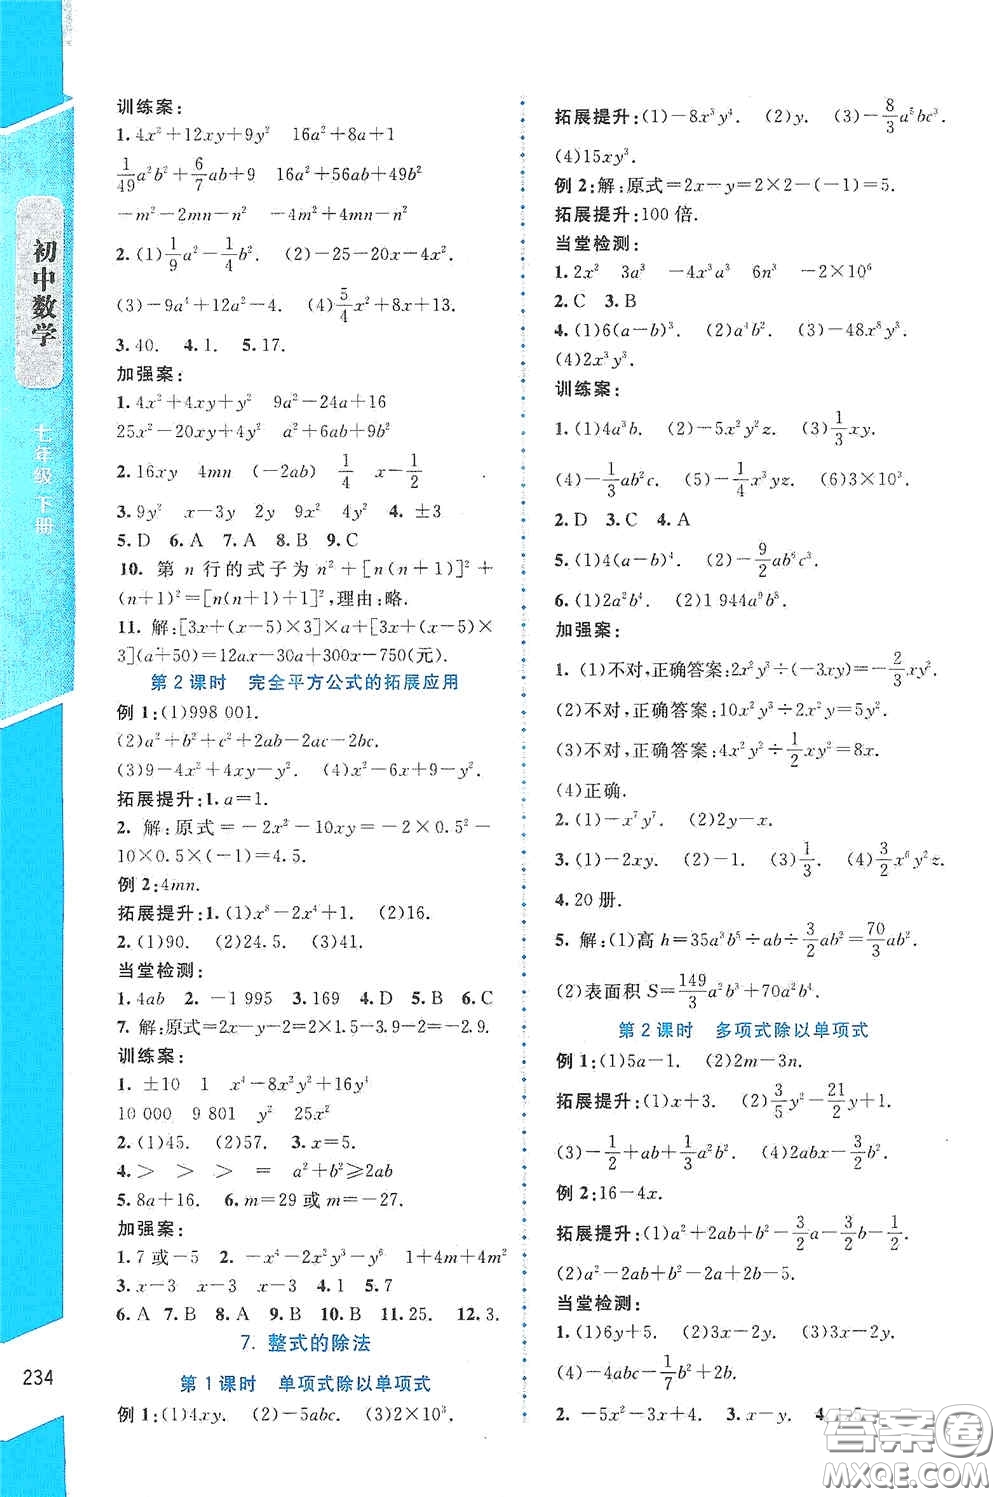 初中数学
七年级 下册
234
训练案:
1. 4x²+12xy+9y² 16a²+8a+1
1/49a²b²+6/7ab+9 16a²+56ab+49b²
-m²-2mn-n² -4m²+4mn-n²
2. (1)1/9a²-1/4b². (2)-25-20x-4x².
(3)-9a⁴+12a²-4. (4)5/4x²+8x+13.
3. 40. 4. 1. 5. 17.
加强案:
1. 4x²+4xy+y² 9a²-24a+16
25x²-20xy+4y² a²+6ab+9b²
2. 16xy 4mn (-2ab) 1/4 -1/2
3. 9y² x-3y 2y 9x² 4y² 4. ±3
5. D 6. A 7. A 8. B 9. C
10. 第 n 行的式子为 n²+[n(n+1)]²+
(n+1)²=[n(n+1)+1]²,理由:略.
11. 解:[3x+(x-5)×3]×a+[3x+(x-5)×
3](a+50)=12ax-30a+300x-750(元).
第 2 课时 完全平方公式的拓展应用
例 1:(1)998 001.
(2)a²+b²+c²+2ab-2ac-2bc.
(3)9-4x²+4xy-y². (4)x²-6x+9-y².
拓展提升:1. a=1.
2. 解:原式=-2x²-10xy=-2×0.5²-
10×0.5×(-1)=4.5.
例 2:4mn.
拓展提升:1. (1)x⁸-2x⁴+1. (2)16.
2. (1)90. (2)24.5. (3)41.
当堂检测:
1. 4ab 2. -1 995 3. 169 4. D 5. B 6. C
7. 解:原式=2x-y-2=2×1.5-1.9-2=-2.9.
训练案:
1. ±10 1 x⁴-8x²y²+16y⁴
10 000 9 801 y² 25x²
2. (1)45. (2)57. 3. x=5.
4. > > > = a²+b²≥2ab
5. 8a+16. 6. m=29 或 m=-27.
加强案:
1. 7 或-5 2. -x⁴-2x²y³-y⁶ 1+4m+4m²
3. x-3 x-3 x-3 4. 1 5. 7
6. A 7. B 8. A 9. B 10. B 11. 25. 12. 3.
7. 整式的除法
第 1 课时 单项式除以单项式
例 1:(1)4xy. (2)-5abc. (3)2×10³.
拓展提升:(1)-8x³y⁴. (2)y. (3)-8/3a⁵bc³.
(4)15xy³.
例 2:解:原式=2x-y=2×2-(-1)=5.
拓展提升:100 倍.
当堂检测:
1. 2x² 3a³ -4x³y² 6n³ -2×10⁶
2. C 3. B
4. (1)6(a-b)³. (2)4a²b². (3)-48x⁸y³.
(4)2x³y³.
训练案:
1. (1)4a³b. (2)-5x²y²z. (3)1/3xy.
(4)-1/3ab²c. (5)-1/4x³yz. (6)3×10³.
2. D 3. C 4. A
5. (1)4(a-b)⁴. (2)-9/2ab⁶c³.
6. (1)2a²b⁴. (2)1 944a⁹b⁸.
加强案:
1. (1)不对,正确答案:2x²y³÷(-3xy)=-2/3xy².
(2)不对,正确答案:10x²y³÷2x²y=5y².
(3)不对,正确答案:4x²y²÷1/2xy²=8x.
(4)正确.
2. (1)-x⁷y⁷. (2)2y-x.
3. (1)-2xy. (2)-1. (3)1/3. (4)3/2x⁶y²z.
4. 20 册.
5. 解:(1)高 h=35a³b⁵÷ab÷3/2ab²=70/3ab².
(2)表面积 S=149/3a²b³+70a²b⁴.
第 2 课时 多项式除以单项式
例 1:(1)5a-1. (2)2m-3n.
拓展提升:(1)x+3. (2)3/5y²-21/2y+1.
(3)-1/2+ab+1/3a²b². (4)2abx-3/2b².
例 2:16-4x.
拓展提升:(1)a²+2ab+b²-3/2a-3/2b-1/2.
(2)a²-2ab+b²-2ac+2bc.
当堂检测:
1. (1)6y+5. (2)2a-4. (3)3x-2y.
(4)-4abc-1/7b²+2.
2. -5x²-3x+4 3. x-y.
答案圈
MXQE.COM